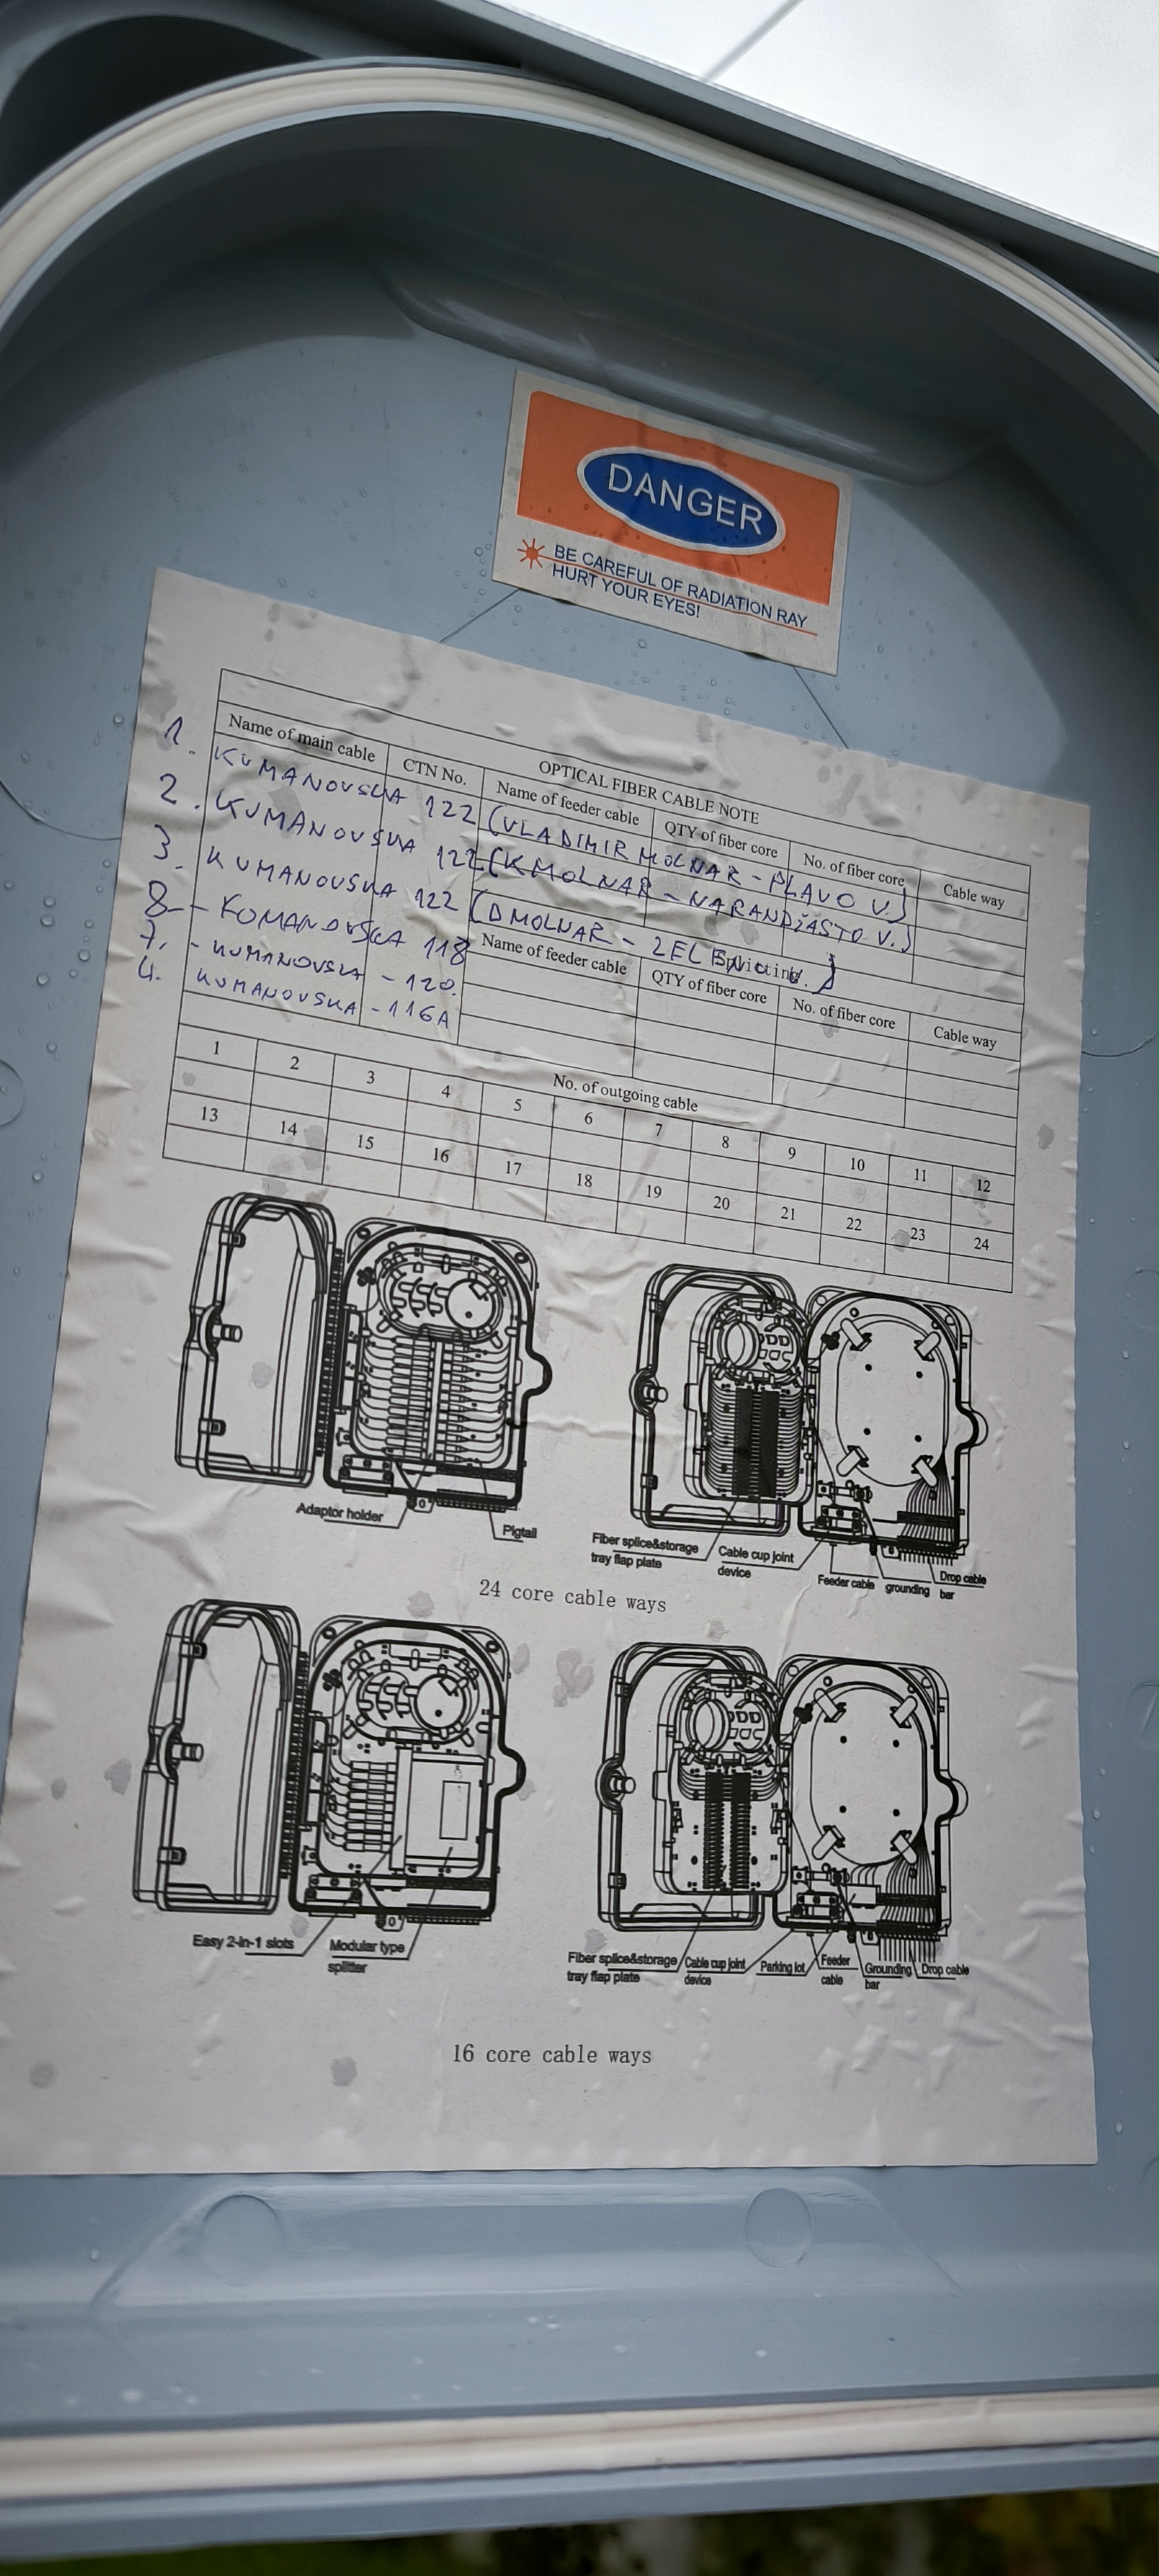 DANGER
BE CAREFUL OF RADIATION RAY
HURT YOUR EYES!
OPTICAL FIBER CABLE NOTE
Name of main cable CTN No. Name of feeder cable QTY of fiber core No. of fiber core Cable way
1. KUMANOVSKA 122 (VLADIMIR MOLNAR - PLAVO V.)
2. KUMANOVSKA 122 (K MOLNAR - NARANDŽASTO V.)
3. KUMANOVSKA 122 (D MOLNAR -
8 - KOMANOVSKA 118
Name of feeder cable QTY of fiber core No. of fiber core Cable way
7. - KUMANOVSKA - 120.
4. KUMANOVSKA - 116A
No. of outgoing cable
1 2 3 4 5 6 7 8 9 10 11 12
13 14 15 16 17 18 19 20 21 22 23 24
Adaptor holder
Pigtail
Fiber splice&storage
tray flap plate
Cable cup joint
device
Feeder cable
grounding
bar
Drop cable
24 core cable ways
Easy 2-in-1 slots
Modular type
splitter
Fiber splice&storage
tray flap plate
Cable cup joint
device
Parking lot
Feeder
cable
Grounding
bar
Drop cable
16 core cable ways